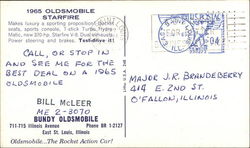 1965 OLDSMOBILE
STARFIRE
Makes luxury a sporting proposition! Bucket
seats, sports console, T-stick Turbo Hydra-
Matic, new 370-hp. Starfire V-8. Dual exhausts!
Power steering and brakes. Test-drive it!
CALL, OR STOP IN
AND SEE ME FOR THE
BEST DEAL ON A 1965
OLDSMOBILE
BILL McLEER
ME 2-3070
BUNDY OLDSMOBILE
711-715 Illinois Avenue Phone BR 1-2127
East St. Louis, Illinois
Oldsmobile... The Rocket Action Car!
ILL.
U.S. POSTAGE
.04
MAJOR J.R. BRANDEBERRY
414 E. 2ND ST.
O'FALLON, ILLINOIS